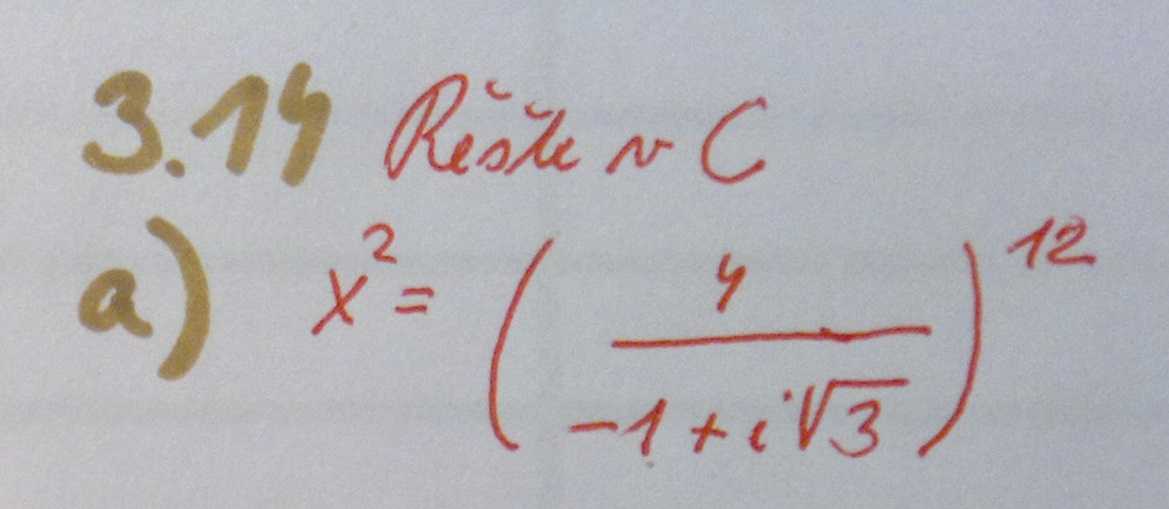 3.14 Řešte v C
a) x² = (4 / (-1 + i√3))¹²